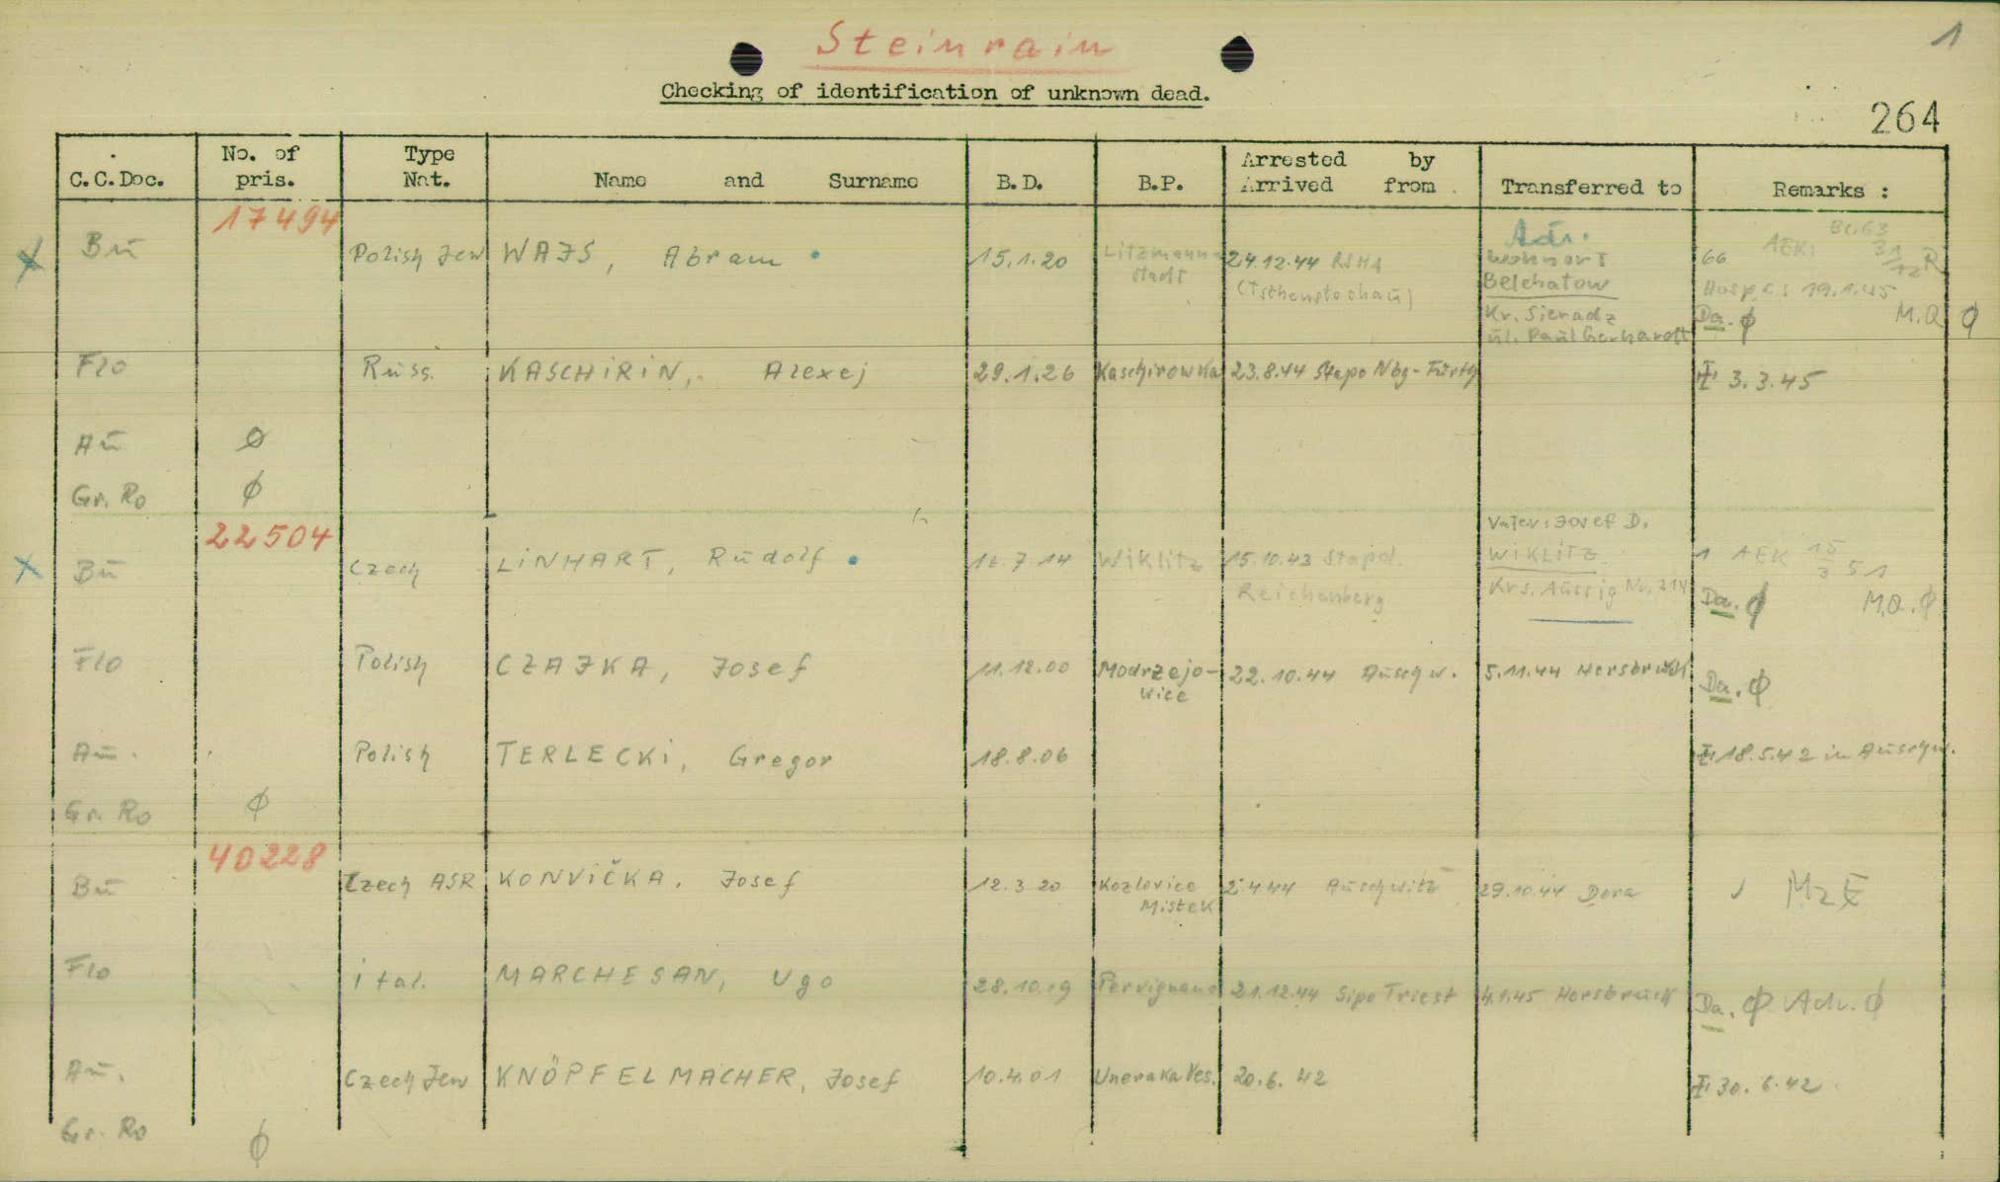 Steinrain
1
Checking of identification of unknown dead.
264
C.C.Doc. No. of pris. Type Nat. Name and Surname B.D. B.P. Arrested by Arrived from Transferred to Remarks :
17494
Bū Polish Jew WAJS, Abram 15.1.20 Litzmann- 24.12.44 RSHA Adr. 66 AEK:
stadt (Tschenstochaū) wohnort
Belchatow Hosp.C: 19.1.45
Kr. Sieradz Da. ϕ M.Q ϕ
ūl. Paūl Gerhardt
Flo Rūss. KASCHiRiN, Alexej 29.1.26 Kaschirowka 23.8.44 Stapo Nbg-Fürth 3.3.45
Aū ϕ
Gr. Ro ϕ
22504 Vater: Josef D.
Bū Czech LiNHART, Rūdolf 7.14 Wiklitz 15.10.43 Stapol. WiKLiTZ 1 AEK 15/3 51
Reichenberg Krs. Aūssig Nr. 214 Da. ϕ M.Q. ϕ
Flo Polish CZAJKA, Josef 11.12.00 Modrzejo- 22.10.44 Aūschw. 5.11.44 Hersbrūck Da. ϕ
wice
Aū. Polish TERLECKi, Gregor 18.8.06 18.5.42 in Aūschw.
Gr. Ro ϕ
40228
Bū Czech ASR KONViČKA, Josef 12.3 20 Kozlovice 2 4 44 Aūschwitz 29.10.44 Dora
Mistek
Flo ital. MARCHESAN, Ugo 28.10.19 21.12.44 Sipo Triest 4.1.45 Hersbrūck Da. ϕ Adr. ϕ
Aū. Czech Jew KNÖPFELMACHER, Josef 10.4.01 20.6.42 30.6.42
Gr. Ro ϕ